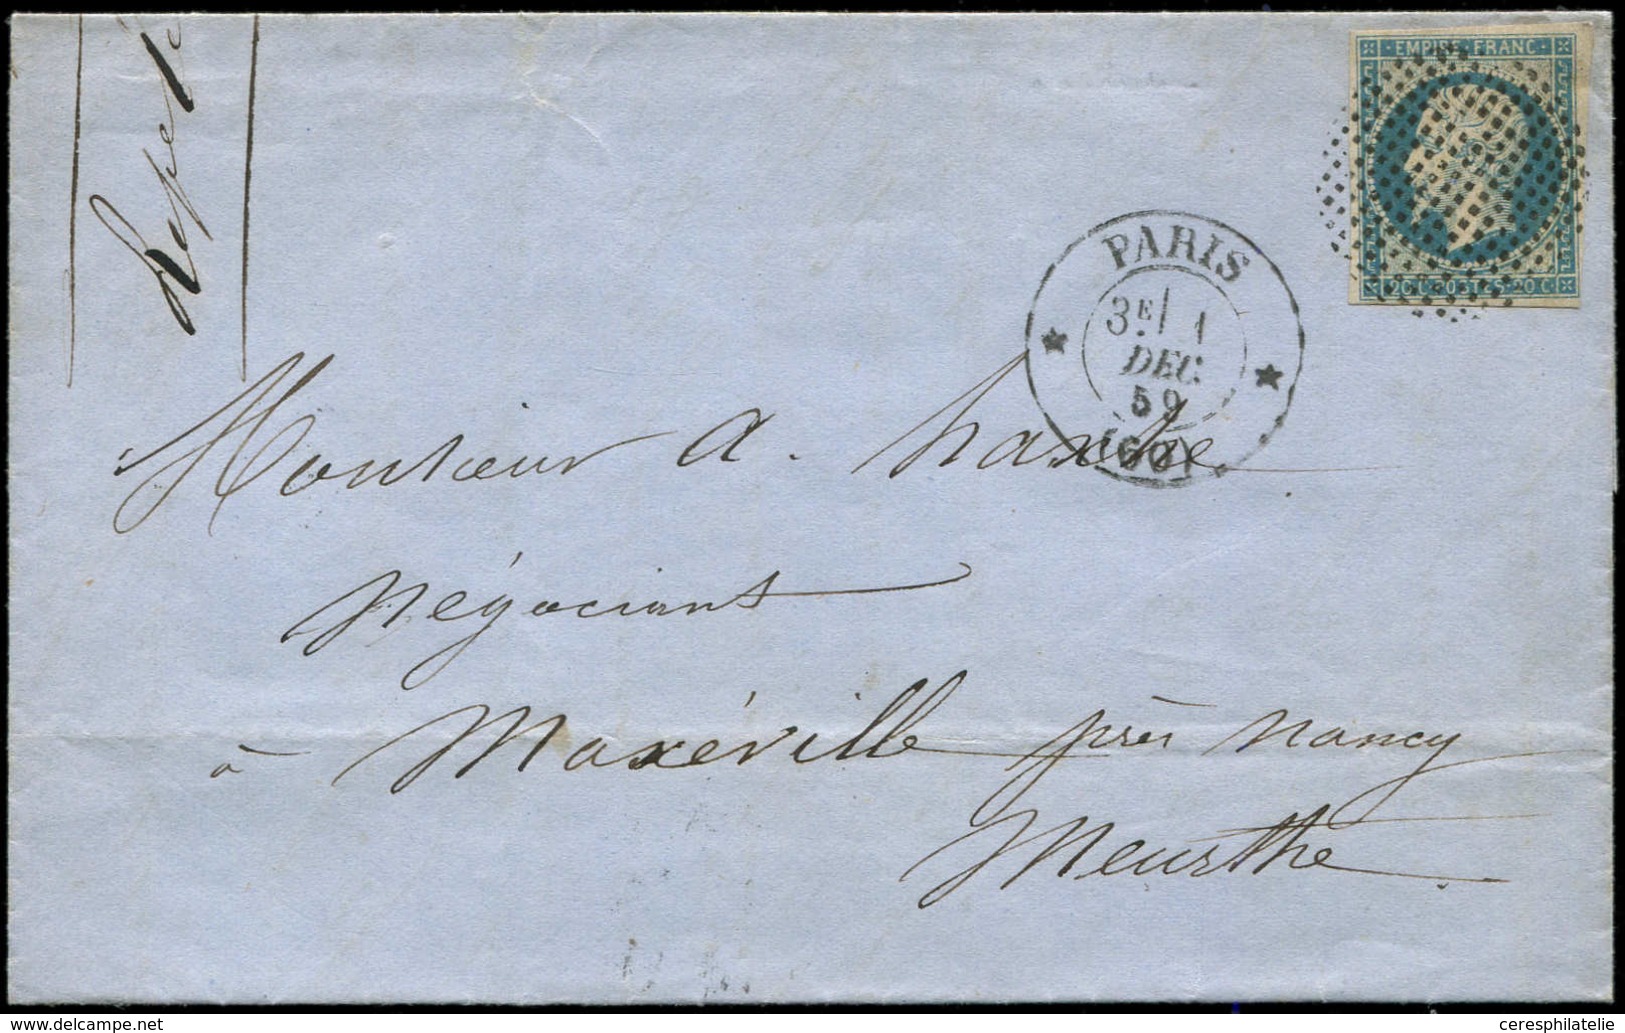 EMPIRE FRANC
20 C. POSTES 20 C.
PARIS
3E 1
DEC.
59
(60)
Monsieur A.
Négociant
à Maxéville près Nancy
Meurthe
delcampe.net
ceresphilatelie